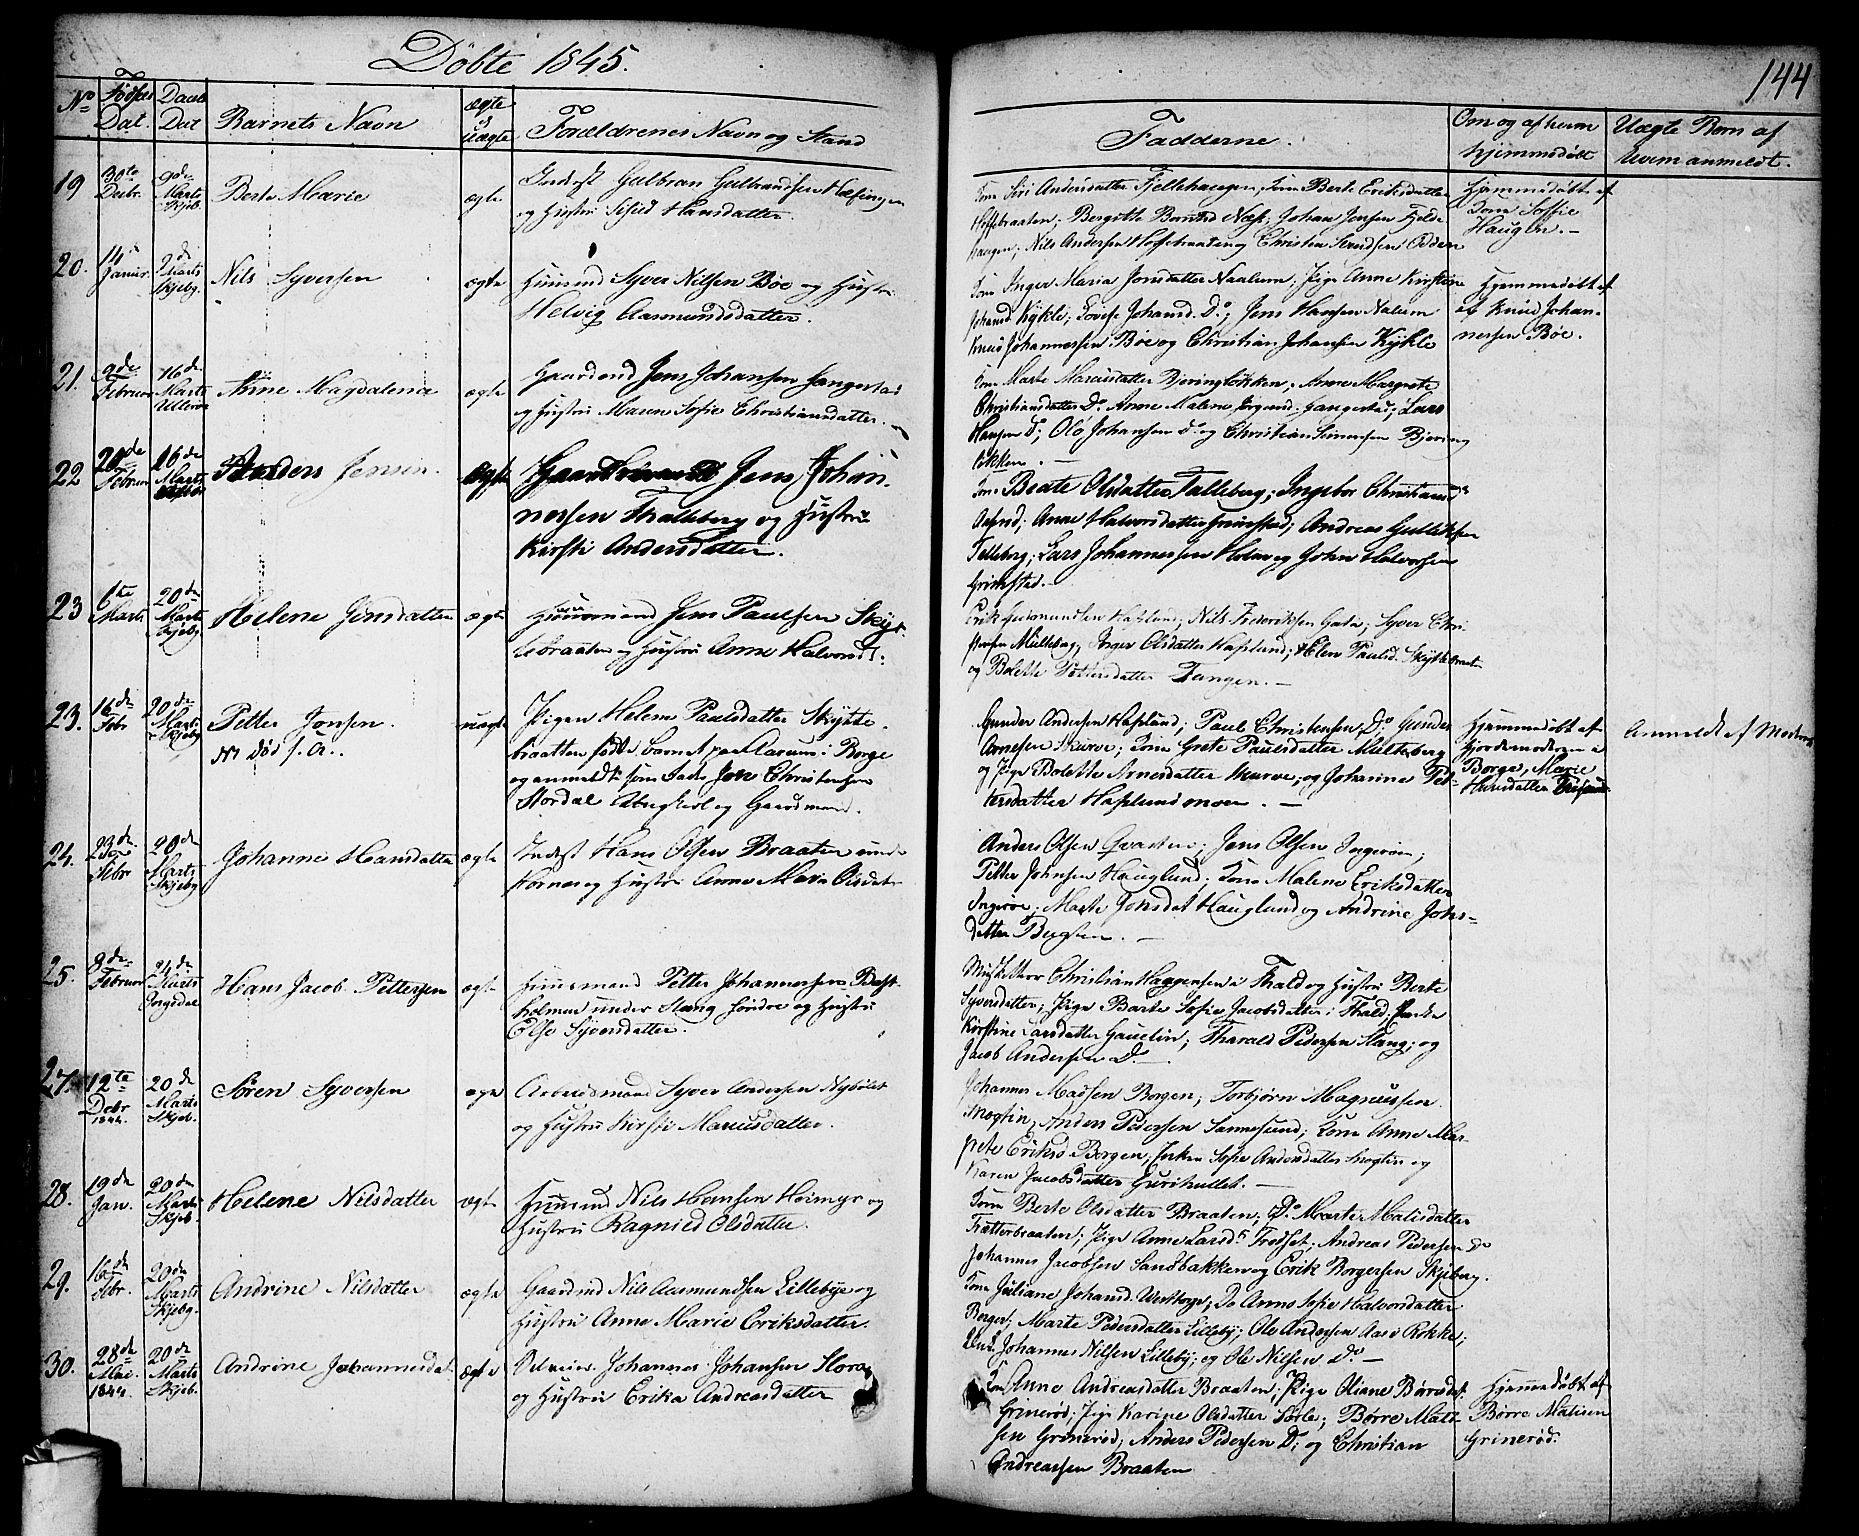 Døbte 1845.
144
No
Fødsels Dat.
Daabs Dat
Barnets Navn
ægte
uægte
Forældrenes Navn og Stand
Fadderne.
Om og af hvem hjemmedøbt
Uægte Børn af hvem anmeldt.
19
30te Decbr.
9de Marts
Berte Marie
ægte
Inderst Gulbran Gulbrandsen
og Hustru Hansdatter.
Andersdatter Fjellehaugen, Kone Berte Eriksdatter
Johan Jensen
haugen; Nils Andersen og Christen
Hjemmedøbt af
Kone Soffie
Haugen.
20.
14de Januar.
2de Marts Skjebg.
Nils Syversen
ægte
Huusmd Syver Nilsen Bøe og Hustru
Helvig Aasmundsdatter.
Kone Inger Maria Jonsdatter Naalum; Pige Anne Kirstine
Johansd. Kykle; Lovise Johansd. Do; Jens Hansen Nalum
Knud Johannessen Bøe og Christian Johansen Kykle
Hjemmedøbt af
af Knud Johan-
nessen Bøe.
21.
9de Februar
16de Marts Ullerøe
Anne Magdalena
ægte
Gaardmd Jens Johansen Hangestad
og Hustru Maren Sofie Christiansdatter.
Kone Marte Mariusdatter Bjeringløkken; Anne Margrete
Christiansdatter Do Anne Malene Hangestad; Lars
Hansen Do; Ole Johansen Do og Christian Simensen Bjering
løkken.
22
20de Februar
16de Marts
Anders Jensen.
ægte
Gaardmand Jens Johan-
nessen Thalleberg og Hustru
Kirsti Andersdatter.
Kone Beate Olsdatter Talleberg; Ingebor Christiansd
Anne Halvorsdatter Grimstad; Andreas Gulliksen
Telleberg; Lars Johannessen Holm og John Halvorsen
Grimstad.
23
1te Marts
20de Marts Skjebg.
Helene Jensdatter
ægte
Huusmand Jens Paulsen Skyt-
tebraaten og Hustru Anne Halvorsd:
Erik Haslund; Nils Frederiksen Gata; Syver Chri-
stensen Mulleberg, Inger Olsdatter Haslund; Helen Paulsd. Skyttebraaten
og Bolette Pettersdatter Tangen.
23.
16de Febr
20de Marts Skjebg.
Petter Jonsen.
No 1 død s. A.
uægte
Pigen Helene Paulsdatter Skytte-
braatten fødte barnet paa Aarum i Borge
og anmeldte som Fader Jon Christensen
Stordal Ungkarl og Gaardmand.
Gunder Andersen Haslund; Paul Christensen Do Gunder
Arnesen Skurve; Kone Grete Paulsdatter Mulleberg
og Pige Bolette Arnesdatter Skurve; og Johanne Pet-
tersdatter Haslundmoen.
Hjemmedøbt af
Gjordemoderen i
Borge, Marie
Hansdatter
Anmeldt af Moderen
24.
23de Febr
20de Marts Skjebg
Johanne Hansdatter
ægte
Inderst Hans Olsen Braaten under
Kornæs og Hustru Anne Marie Olsdat
Anders Olsen Qvasten; Jens Olsen Ingerøe;
Petter Johnsen Hauglund; Kone Malene Eriksdatter
Ingerøe; Marte Jonsdat Hauglund og Andrine Johs-
datter Bugten.
25.
8de Februar
24de Marts Ingedal
Hans Jacob Pettersen
ægte
Huusmand Petter Johannessen Bøst-
holmen under Stang Søndre og Hustru
Else Syversdatter.
Musketeer Christian Haggensen i Thald og Hustru Berte
Syversdatter; Pige Barte Sofie Jacobsdatter i Thald; Enke
Kirstine Larsdatter Gauslin; Tharald Pedersen Stang; og
Jacob Andersen Do
27.
12te Decbr 1844.
20de Marts Skjeb.
Søren Syversen
ægte
Arbeidsmand Syver Andersen Nybølet
og Hustru Kirsti Mariusdatter.
Johannes Madsen Borgen; Torbjørn Magnussen
Mogstin, Anders Pedersen Sannesund; Kone Anne Mar-
grete Eriksd. Borgen; Enken Sofie Andersdatter Mogstin og
Karen Jacobsdatter Gurihullet.
28.
19de Jan.
20de Marts Skjeb.
Helene Nilsdatter
ægte
Huusmd Nils Hansen Heimyr og
Hustru Ragnild Olsdatter.
Kone Berte Olsdatter Braaten; Do Marte Matisdatter
Tratterbraaten; Pige Anne Larsd. Trodset; Andreas Pedersen Do
Johannes Jacobsen Sandbakken og Erik Borgersen Skjeberg.
29.
16de Febr.
20de Marts Skjebg.
Andrine Nilsdatter
ægte
Gaardmd Nils Aasmundsen Lillebye og
Hustru Anne Marie Eriksdatter.
Kone Juliane Johansd. Westborge; Do Anne Sofie Halvorsdatter
Borge; Marte Pedersdatter Lilleby; Ole Andersen Aas i Rokke;
Johannes Nilsen Lilleby; og Ole Nilsen Do
30.
28de Mai 1844.
20de Marts Skjeb.
Andrine Johannesdat.
ægte
Selveier Johannes Johansen Hora
og Hustru Erika Andreasdatter
Kone Anne Andreasdatter Braaten; Pige Oliane Børresdat.
Grinerød; Pige Karine Olsdatter Sørle; Børre Mati-
sen Grinerød, Anders Pedersen Do; og Christian
Andreassen Braaten
Hjemmedøbt af
Børre Matisen
Grinerød.